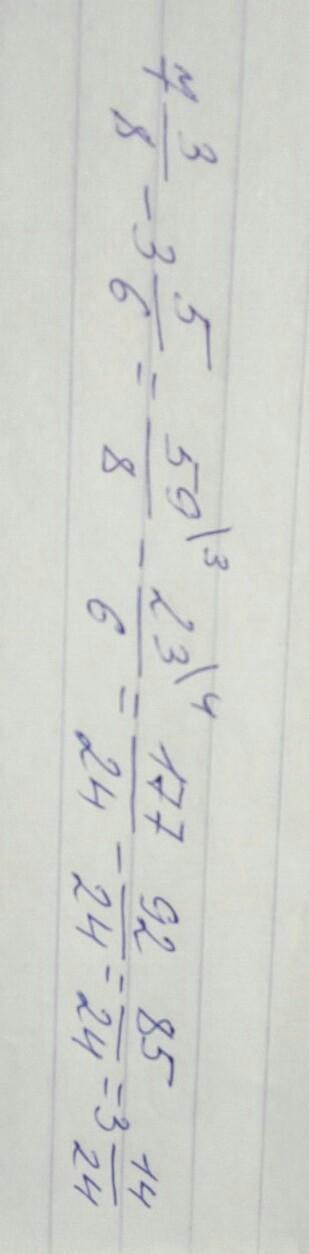 7 3/8 - 3 5/6 = 59\3/8 - 23\4/6 = 177/24 - 92/24 = 85/24 = 3 14/24